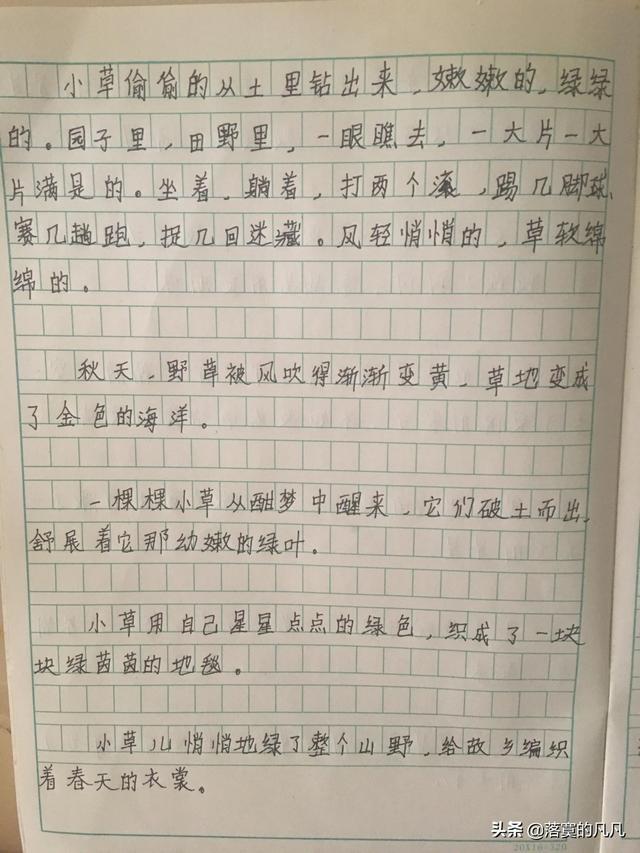 小草偷偷的从土里钻出来，嫩嫩的，绿绿
的。园子里，田野里，一眼瞧去，一大片一大
片满是的。坐着，躺着，打两个滚，踢几脚球，
赛几趟跑，捉几回迷藏。风轻悄悄的，草软绵
绵的。
秋天，野草被风吹得渐渐变黄，草地变成
了金色的海洋。
一棵棵小草从酣梦中醒来，它们破土而出，
舒展着它那幼嫩的绿叶。
小草用自己星星点点的绿色，织成了一块
块绿茵茵的地毯。
小草儿悄悄地绿了整个山野，给故乡编织
着春天的衣裳。
头条 @落寞的凡凡
20X16=320